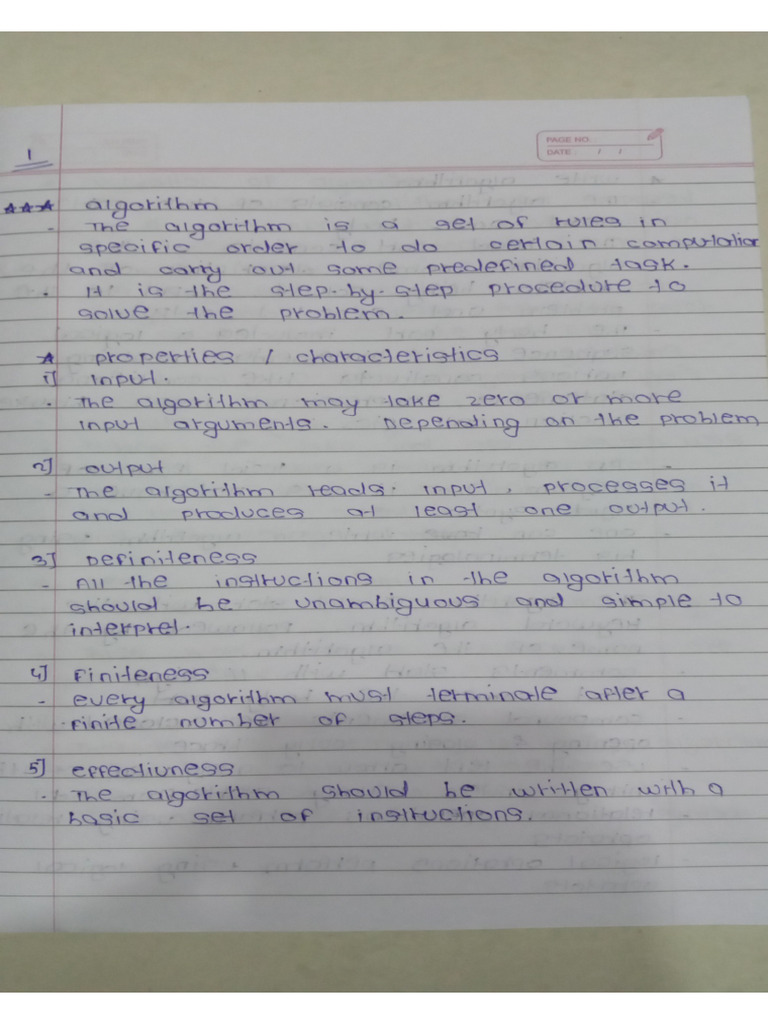 PAGE NO.
DATE / /
1
★★★ algorithm
- The algorithm is a set of rules in
specific order to do certain computation
and carry out some predefined task.
. It is the step-by-step procedure to
solve the problem.
★ properties / characteristics
1] Input.
. The algorithm may take zero or more
input arguments. Depending on the problem
2] output
- The algorithm reads input, processes it
and produces at least one output.
3] Definiteness
- All the instructions in the algorithm
should be unambiguous and simple to
interpret.
4] Finiteness
- every algorithm must terminate after a
finite number of steps.
5] effectivness
- The algorithm should be written with a
basic set of instructions.